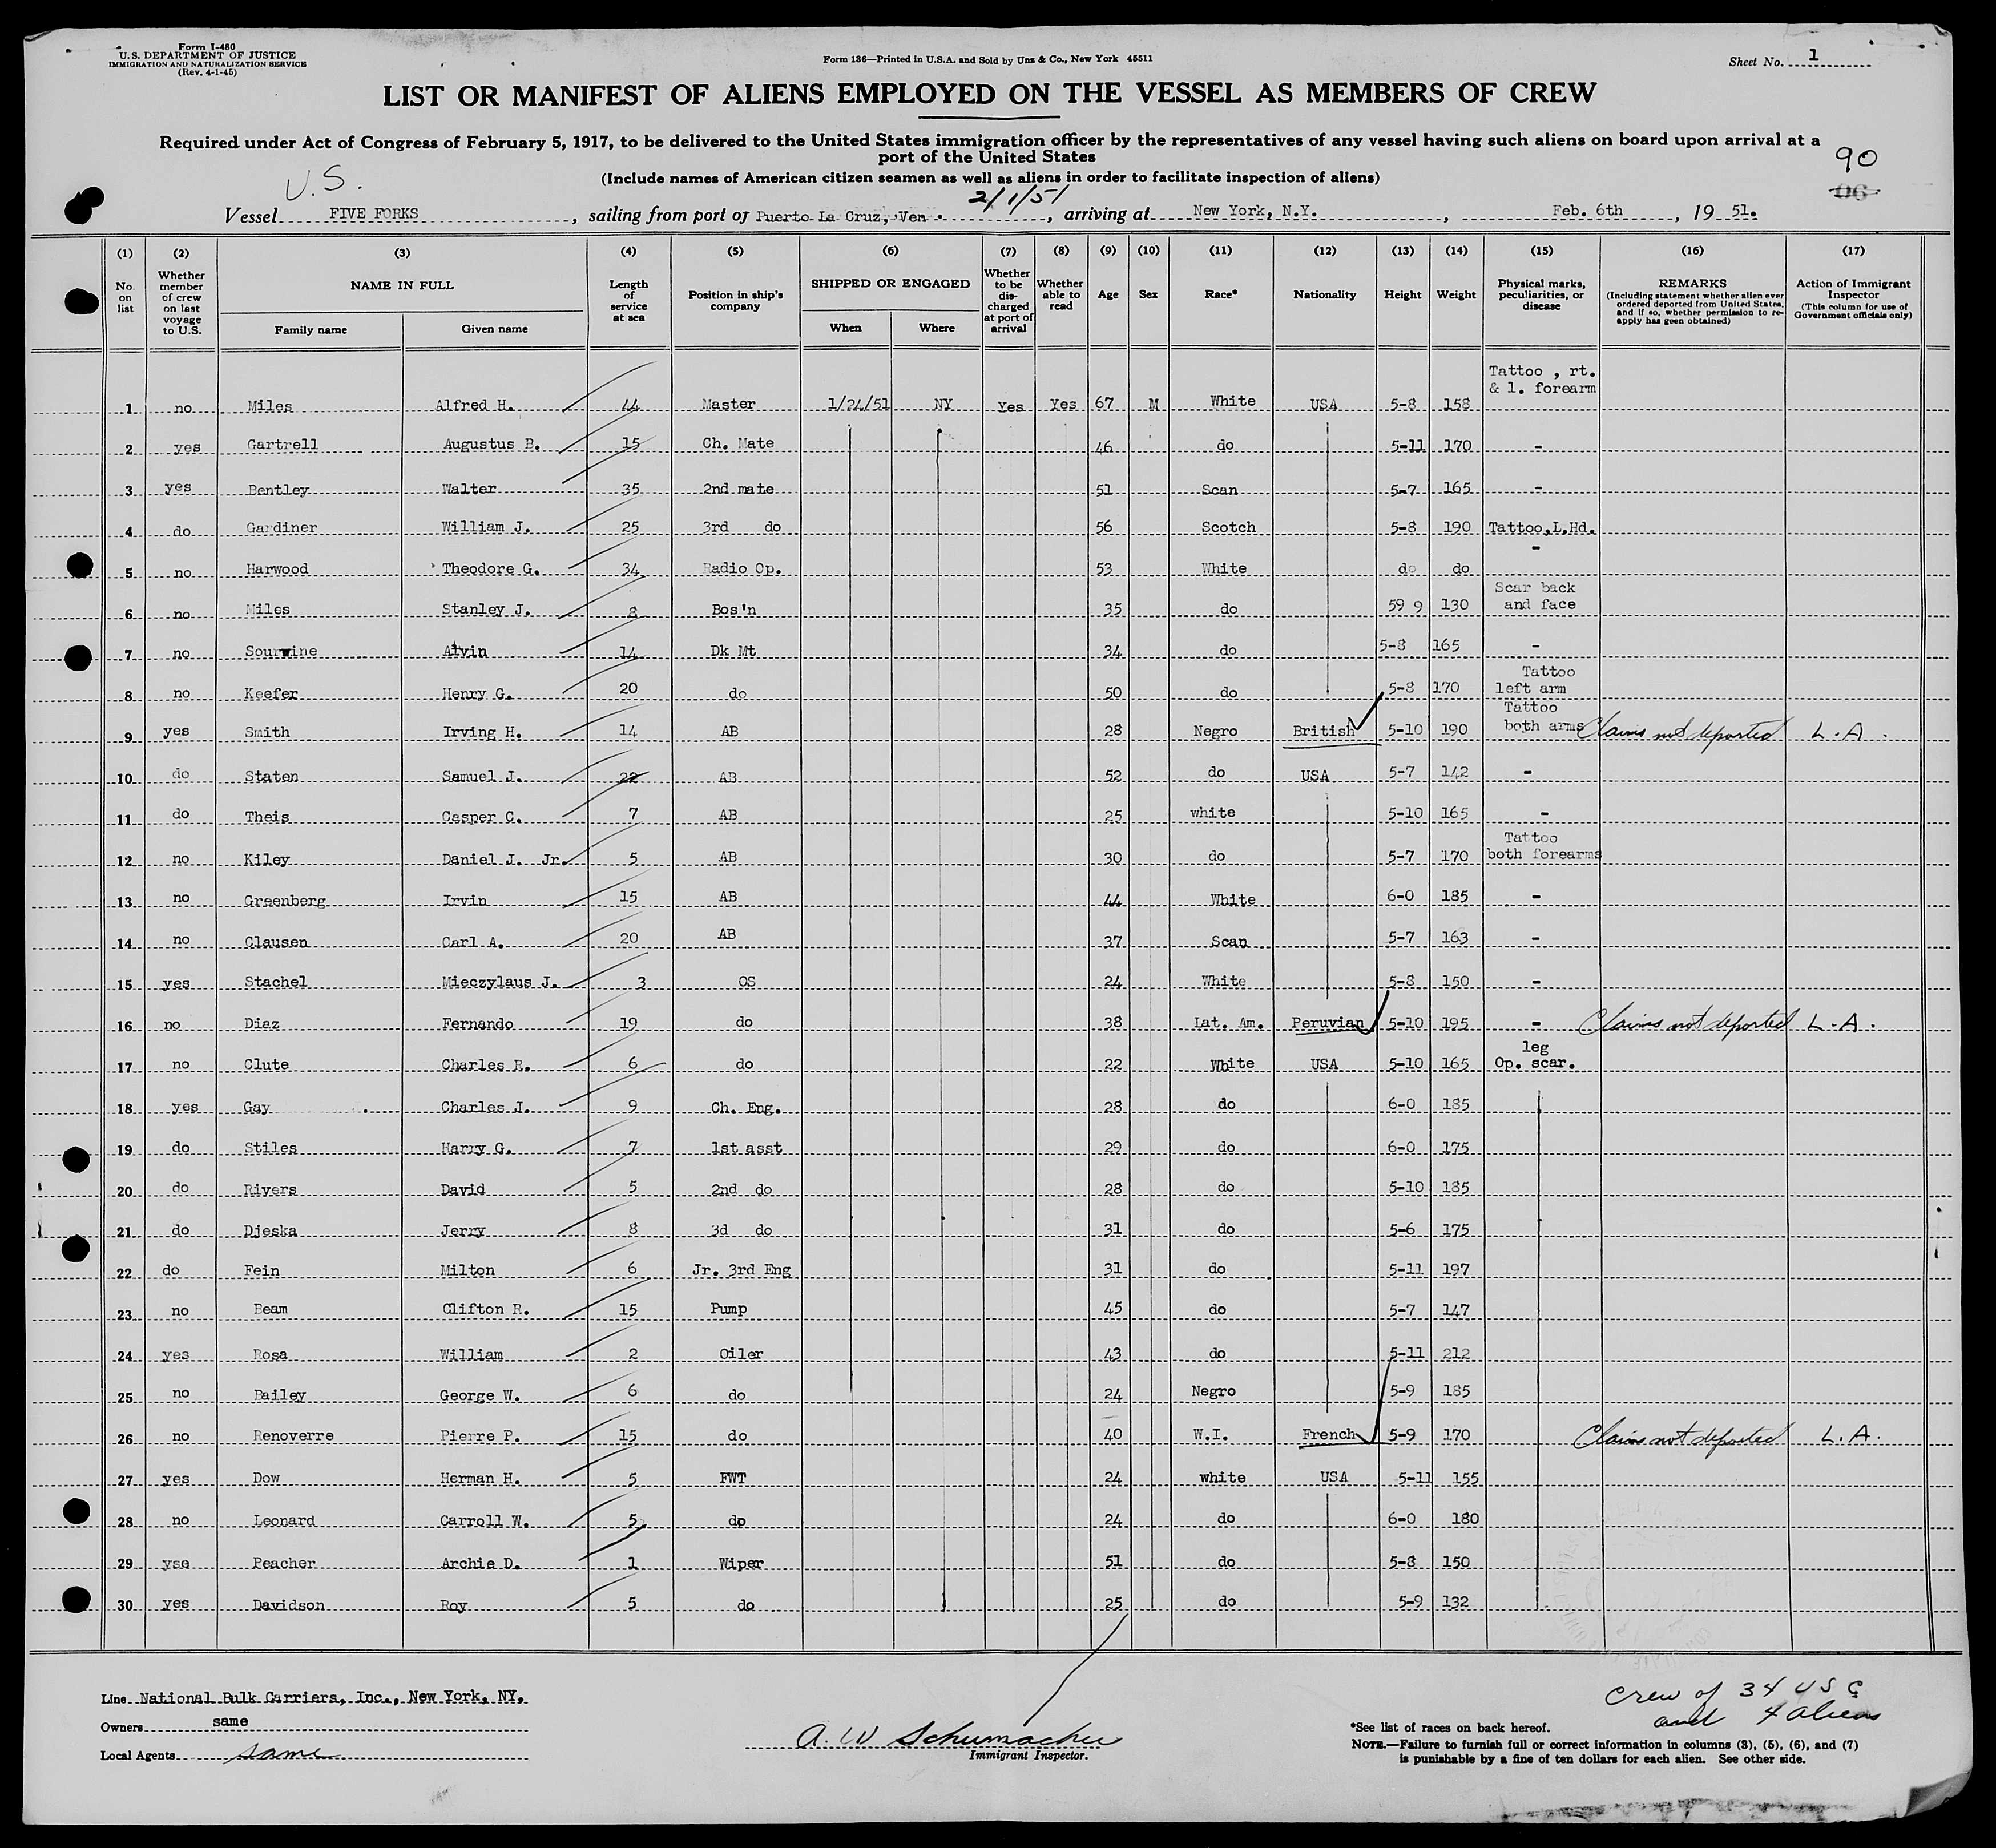 Form I-480
U.S. DEPARTMENT OF JUSTICE
IMMIGRATION AND NATURALIZATION SERVICE
(Rev. 4-1-45)
Form 136—Printed in U.S.A. and Sold by Unz & Co., New York 45511
Sheet No. 1
LIST OR MANIFEST OF ALIENS EMPLOYED ON THE VESSEL AS MEMBERS OF CREW
Required under Act of Congress of February 5, 1917, to be delivered to the United States immigration officer by the representatives of any vessel having such aliens on board upon arrival at a
port of the United States
90
(Include names of American citizen seamen as well as aliens in order to facilitate inspection of aliens)
U.S.
2/1/51
06
Vessel FIVE FORKS, sailing from port of Puerto La Cruz, Ven., arriving at New York, N.Y., Feb. 6th, 19 51.
(1) (2) (3) (4) (5) (6) (7) (8) (9) (10) (11) (12) (13) (14) (15) (16) (17)
No. on list
Whether member of crew on last voyage to U.S.
NAME IN FULL
Family name
Given name
Length of service at sea
Position in ship's company
SHIPPED OR ENGAGED
When
Where
Whether to be discharged at port of arrival
Whether able to read
Age
Sex
Race*
Nationality
Height
Weight
Physical marks, peculiarities, or disease
REMARKS
(Including statement whether alien ever ordered deported from United States, and if so, whether permission to reapply has geen obtained)
Action of Immigrant Inspector
(This column for use of Government officials only)
1 no Miles Alfred H. 44 Master 1/24/51 NY Yes Yes 67 M White USA 5-8 158 Tattoo , rt. & l. forearm
2 yes Gartrell Augustus B. 15 Ch. Mate 46 do 5-11 170 -
3 yes Bentley Walter 35 2nd mate 51 Scan 5-7 165 -
4 do Gardiner William J. 25 3rd do 56 Scotch 5-8 190 Tattoo,L.Hd.
5 no Harwood Theodore G. 34 Radio Op. 53 White do do -
6 no Miles Stanley J. 8 Bos'n 35 do 59 9 130 Scar back and face
7 no Sourwine Alvin 14 Dk Mt 34 do 5-8 165 -
8 no Keefer Henry G. 20 do 50 do 5-8 170 Tattoo left arm
9 yes Smith Irving H. 14 AB 28 Negro British 5-10 190 Tattoo both arms Claims not deported L.A.
10 do Staten Samuel J. 22 AB 52 do USA 5-7 142 -
11 do Theis Casper C. 7 AB 25 white 5-10 165 -
12 no Kiley Daniel J. Jr. 5 AB 30 do 5-7 170 Tattoo both forearms
13 no Greenberg Irvin 15 AB 44 White 6-0 185 -
14 no Clausen Carl A. 20 AB 37 Scan 5-7 163 -
15 yes Stachel Mieczylaus J. 3 OS 24 White 5-8 150 -
16 no Diaz Fernando 19 do 38 Lat. Am. Peruvian 5-10 195 - Claims not deported L.A.
17 no Clute Charles R. 6 do 22 White USA 5-10 165 leg Op. scar.
18 yes Gay Charles J. 9 Ch. Eng. 28 do 6-0 185
19 do Stiles Harry G. 7 1st asst 29 do 6-0 175
20 do Rivers David 5 2nd do 28 do 5-10 185
21 do Djeska Jerry 8 3d do 31 do 5-6 175
22 do Fein Milton 6 Jr. 3rd Eng 31 do 5-11 197
23 no Beam Clifton R. 15 Pump 45 do 5-7 147
24 yes Rosa William 2 Oiler 43 do 5-11 212
25 no Bailey George W. 6 do 24 Negro 5-9 185
26 no Renoverre Pierre P. 15 do 40 W.I. French 5-9 170 Claims not deported L.A.
27 yes Dow Herman H. 5 FWT 24 white USA 5-11 155
28 no Leonard Carroll W. 5 do 24 do 6-0 180
29 yse Peacher Archie D. 1 Wiper 51 do 5-8 150
30 yes Davidson Roy 5 do 25 do 5-9 132
Line National Bulk Carriers, Inc., New York, NY.
Owners same
Local Agents same
A. W Schumacher
Immigrant Inspector.
Crew of 34 USC
and 4 aliens
*See list of races on back hereof.
NOTE.—Failure to furnish full or correct information in columns (3), (5), (6), and (7)
is punishable by a fine of ten dollars for each alien. See other side.